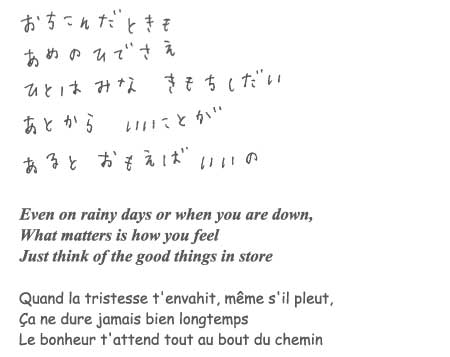 おちこんだときも
あめのひでさえ
ひとは みな きもちしだい
あとから いいことが
あると おもえば いいの
Even on rainy days or when you are down,
What matters is how you feel
Just think of the good things in store
Quand la tristesse t'envahit, même s'il pleut,
Ça ne dure jamais bien longtemps
Le bonheur t'attend tout au bout du chemin